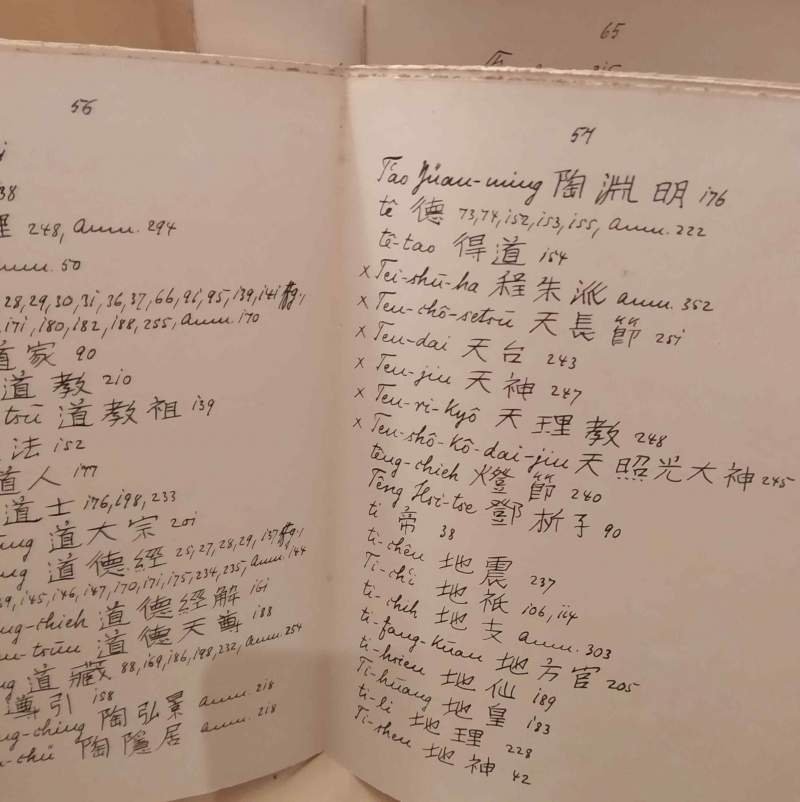 65
56
38
理 248, Anm. 294
Anm. 50
28, 29, 30, 31, 36, 37, 66, 91, 95, 139, 141 ffg.,
171, 180, 182, 188, 255, Anm. 170
道家 90
道教 210
tsū 道教祖 139
法 152
道人 177
道士 176, 198, 233
道大宗 201
道德經 25, 27, 28, 29, 137 ffg.,
145, 146, 147, 170, 171, 175, 234, 235, Anm. 144
ng-chieh 道德經解 161
道德天尊 188
道藏 88, 169, 186, 198, 232, Anm. 254
導引 158
ng-ching 陶弘景 Anm. 218
n-chü 陶隱居 Anm. 218
57
T'ao Yüan-ming 陶淵明 176
tê 德 73, 74, 152, 153, 155, Anm. 222
tê-tao 得道 154
x Tei-shū-ha 程朱派 Anm. 352
x Ten-chō-setsū 天長節 251
x Ten-dai 天台 243
x Ten-jin 天神 247
x Ten-ri-Kyō 天理教 248
x Ten-shō-Kō-dai-jin 天照光大神 245
têng-chieh 燈節 240
Têng Hsi-tse 鄧析子 90
ti 帝 38
ti-chên 地震 237
Ti-ch'i 地祇 106, 114
ti-chih 地支 Anm. 303
ti-fang-kuan 地方官 205
ti-hsien 地仙 189
Ti-huang 地皇 183
ti-li 地理 228
Ti-shen 地神 42